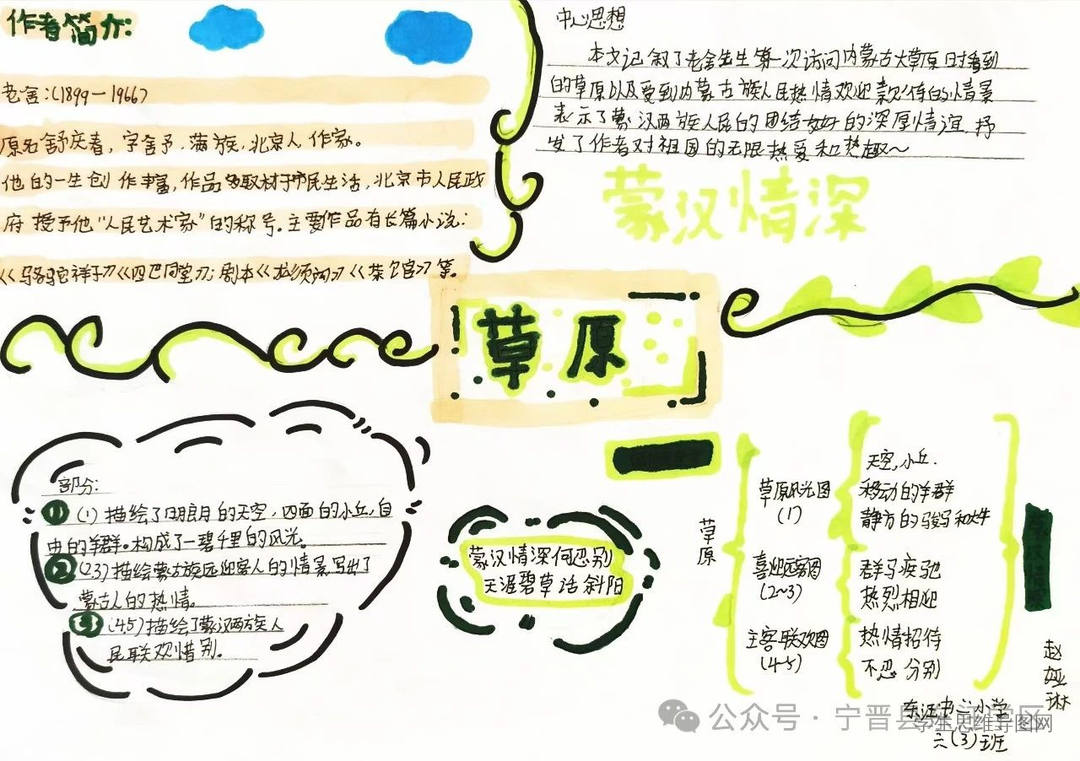 作者简介:
老舍:(1899—1966)
原名舒庆春，字舍予，满族，北京人，作家。
他的一生创作丰富，作品多取材于市民生活，北京市人民政
府授予他"人民艺术家"的称号。主要作品有长篇小说:
《骆驼祥子》《四世同堂》;剧本《龙须沟》《茶馆》等。
中心思想
本文记叙了老舍先生第一次访问内蒙古大草原时看到
的草原以及受到内蒙古族人民热情欢迎款待的情景
表示了蒙汉两族人民的团结友好的深厚情谊,抒
发了作者对祖国的无限热爱和热趣～
蒙汉情深
草原
部分:
① (1)描绘了明朗的天空，四面的小丘,自
由的羊群。构成了一碧千里的风光。
② (2.3)描绘蒙古族远迎客人的情景,写出了
蒙古人的热情。
③ (4.5)描绘了蒙汉两族人
民联欢惜别。
蒙汉情深何忍别
天涯碧草话斜阳
草原
草原风光图
(1)
天空,小丘.
移动的羊群
静立的骏马和大牛
喜迎远客图
(2~3)
群马疾驰
热烈相迎
主客联欢图
(4-5)
热情招待
不忍分别
赵娅琳
东汪书二小学
六(3)班
公众号·宁晋县
学生思维导图网